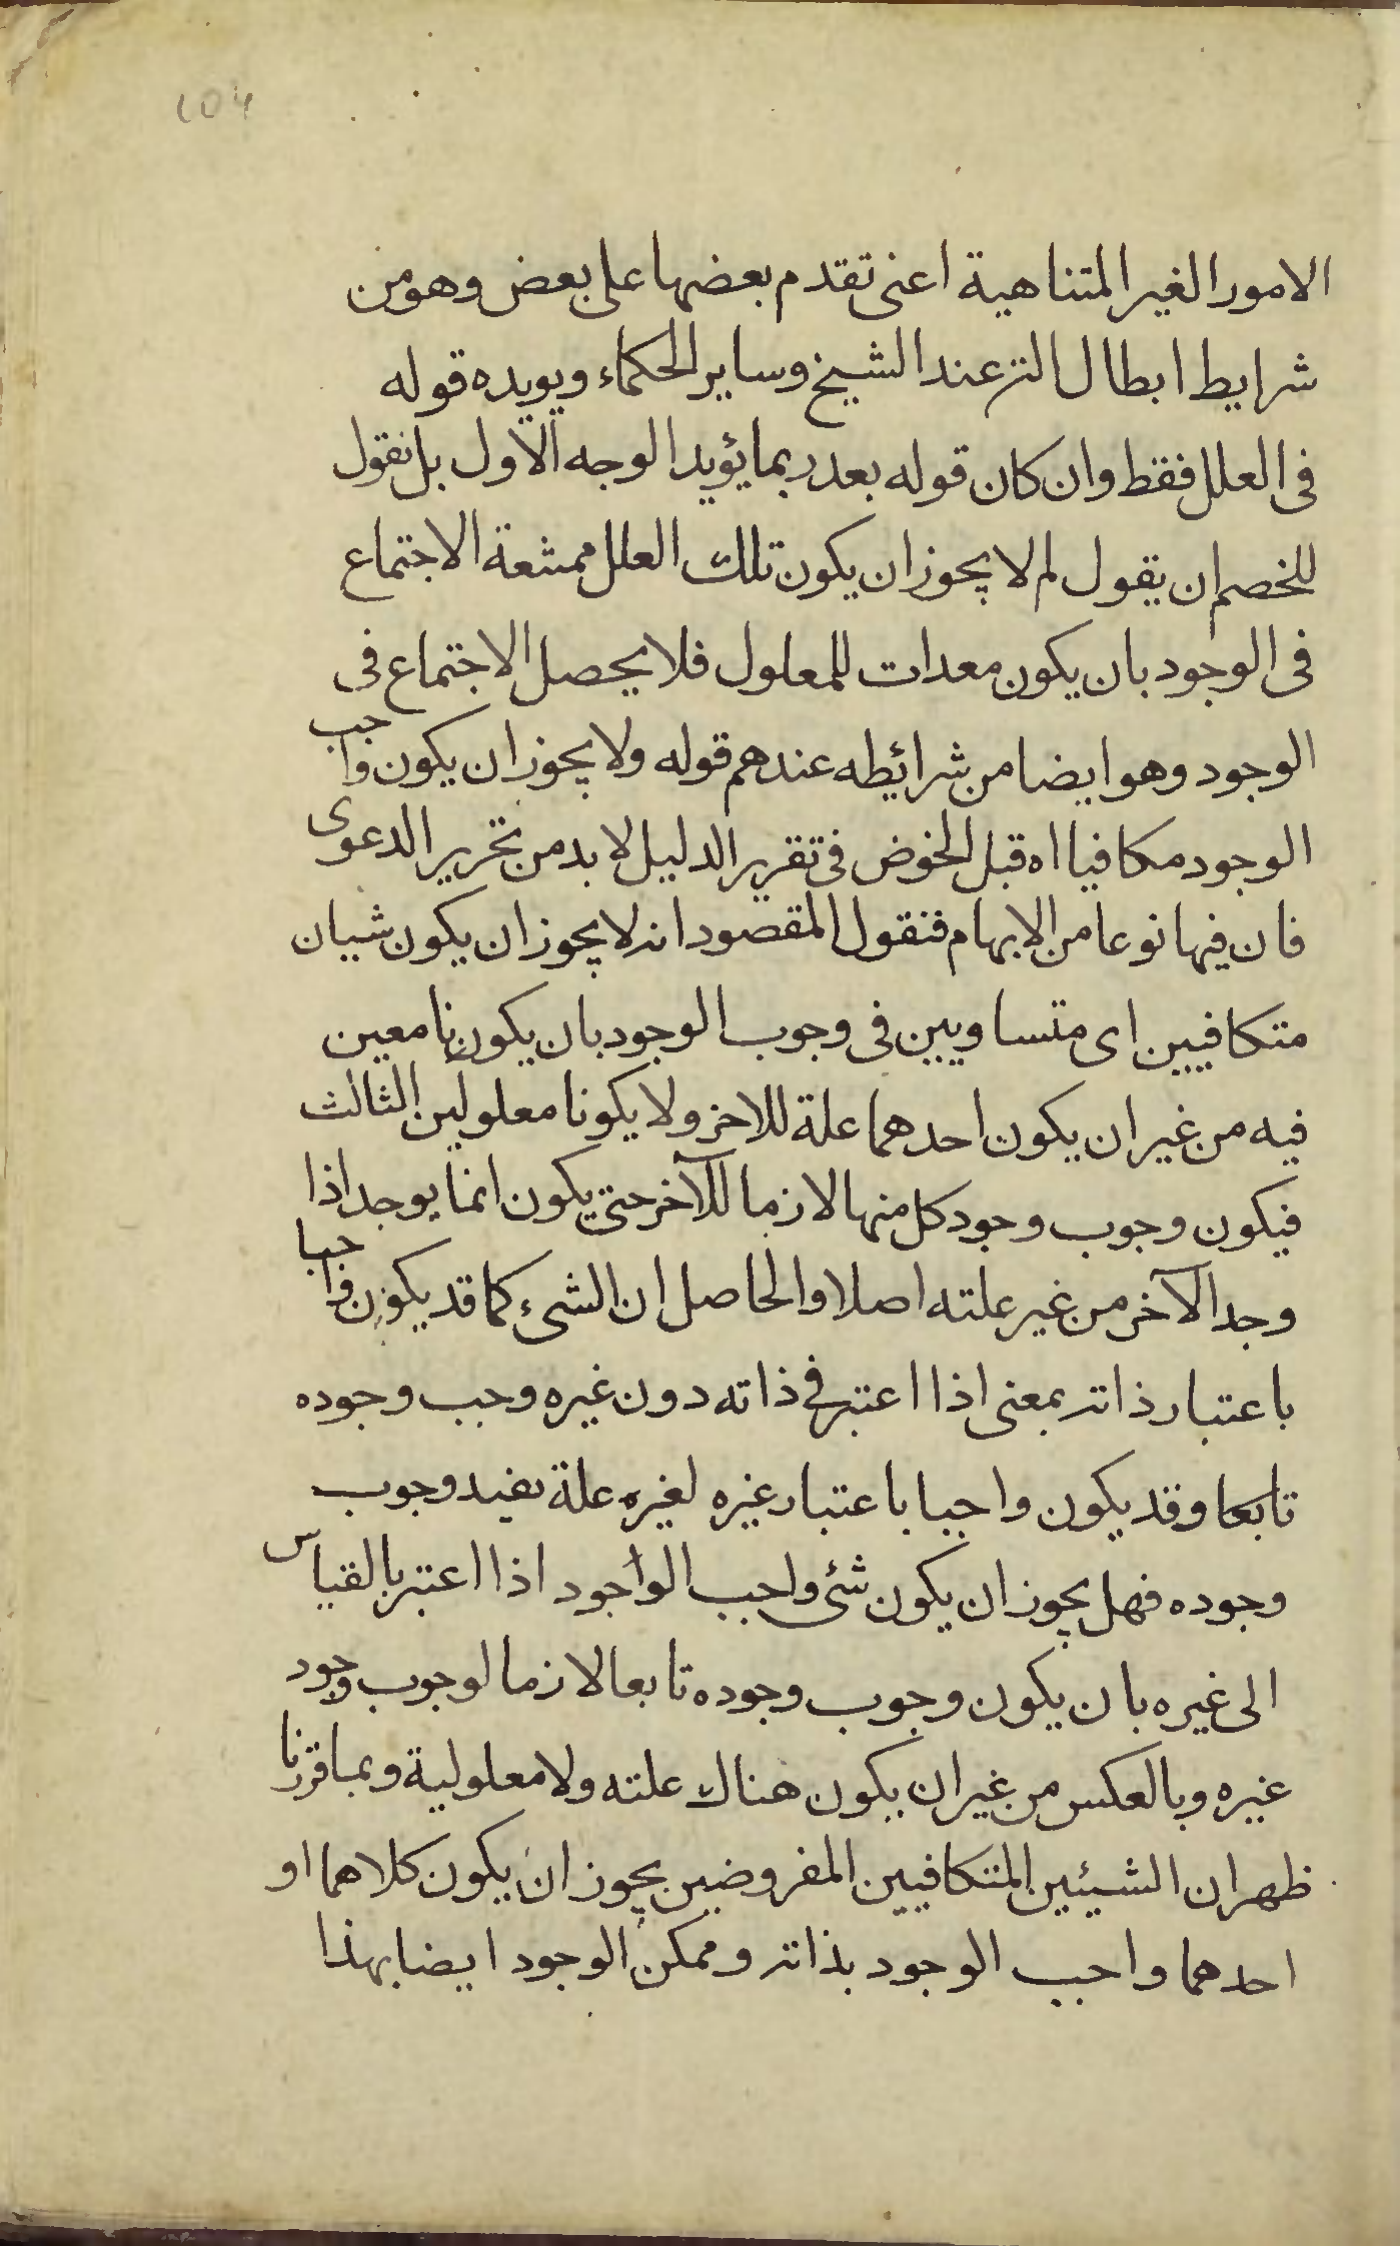 104
الامور الغير المتناهية اعنى تقدم بعضها على بعض وهو من
شرايط ابطال التـ عند الشيخ وساير الحكماء ويويده قوله
فى العلل فقط وان كان قوله بعد ربما يؤيد الوجه الاول بل نقول
للخصم ان يقول لم لا يجوز ان يكون تلك العلل ممتنعة الاجتماع
فى الوجود بان يكون معدات للمعلول فلا يحصل الاجتماع فى
الوجود وهو ايضا من شرائطه عندهم قوله ولا يجوز ان يكون واجب
الوجود مكافيا اه قبل الخوض فى تقرير الدليل لا بد من تحرير الدعوى
فان فيها نوعا من الابهام فنقول المقصود انه لا يجوز ان يكون شيان
متكافيين اى متساويين فى وجوب الوجود بان يكونا معين
فيه من غير ان يكون احدهما علة للاخر ولا يكونا معلولين الثالث
فيكون وجوب وجود كل منها لازما للآخر حتى يكون انما يوجد اذا
وجد الآخر من غير علته اصلا والحاصل ان الشىء كما قد يكون واجبا
باعتبار ذاته بمعنى اذا اعتبر فى ذاته دون غيره وجب وجوده
تابعا وقد يكون واجبا باعتبار غيره لغيره علة يفيد وجوب
وجوده فهل يجوز ان يكون شئ واجب الواجود اذا اعتبر بالقياس
الى غيره بان يكون وجوب وجوده تابعا لازما لوجوب وجود
غيره وبالعكس من غير ان يكون هناك علته ولا معلولية وبما قررنا
ظهر ان الشيئين المتكافيين المفروضين يجوز ان يكون كلاهما او
احدهما واجب الوجود بذاته وممكن الوجود ايضا بهذا